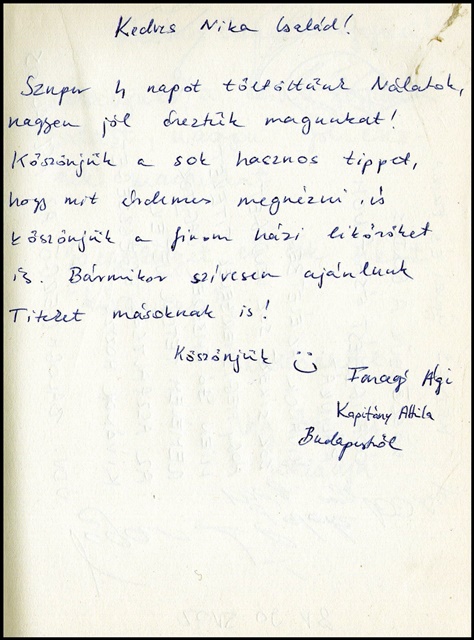 Kedves Nika Család!
Szuper 4 napot töltöttünk Nálatok,
nagyon jól éreztük magunkat!
Köszönjük a sok hasznos tippet,
hogy mit érdemes megnézni, és
köszönjük a finom házi likőröket
is. Bármikor szívesen ajánlunk
Titeket másoknak is!
Köszönjük
Faragó Ági
Kapitány Attila
Budapestről